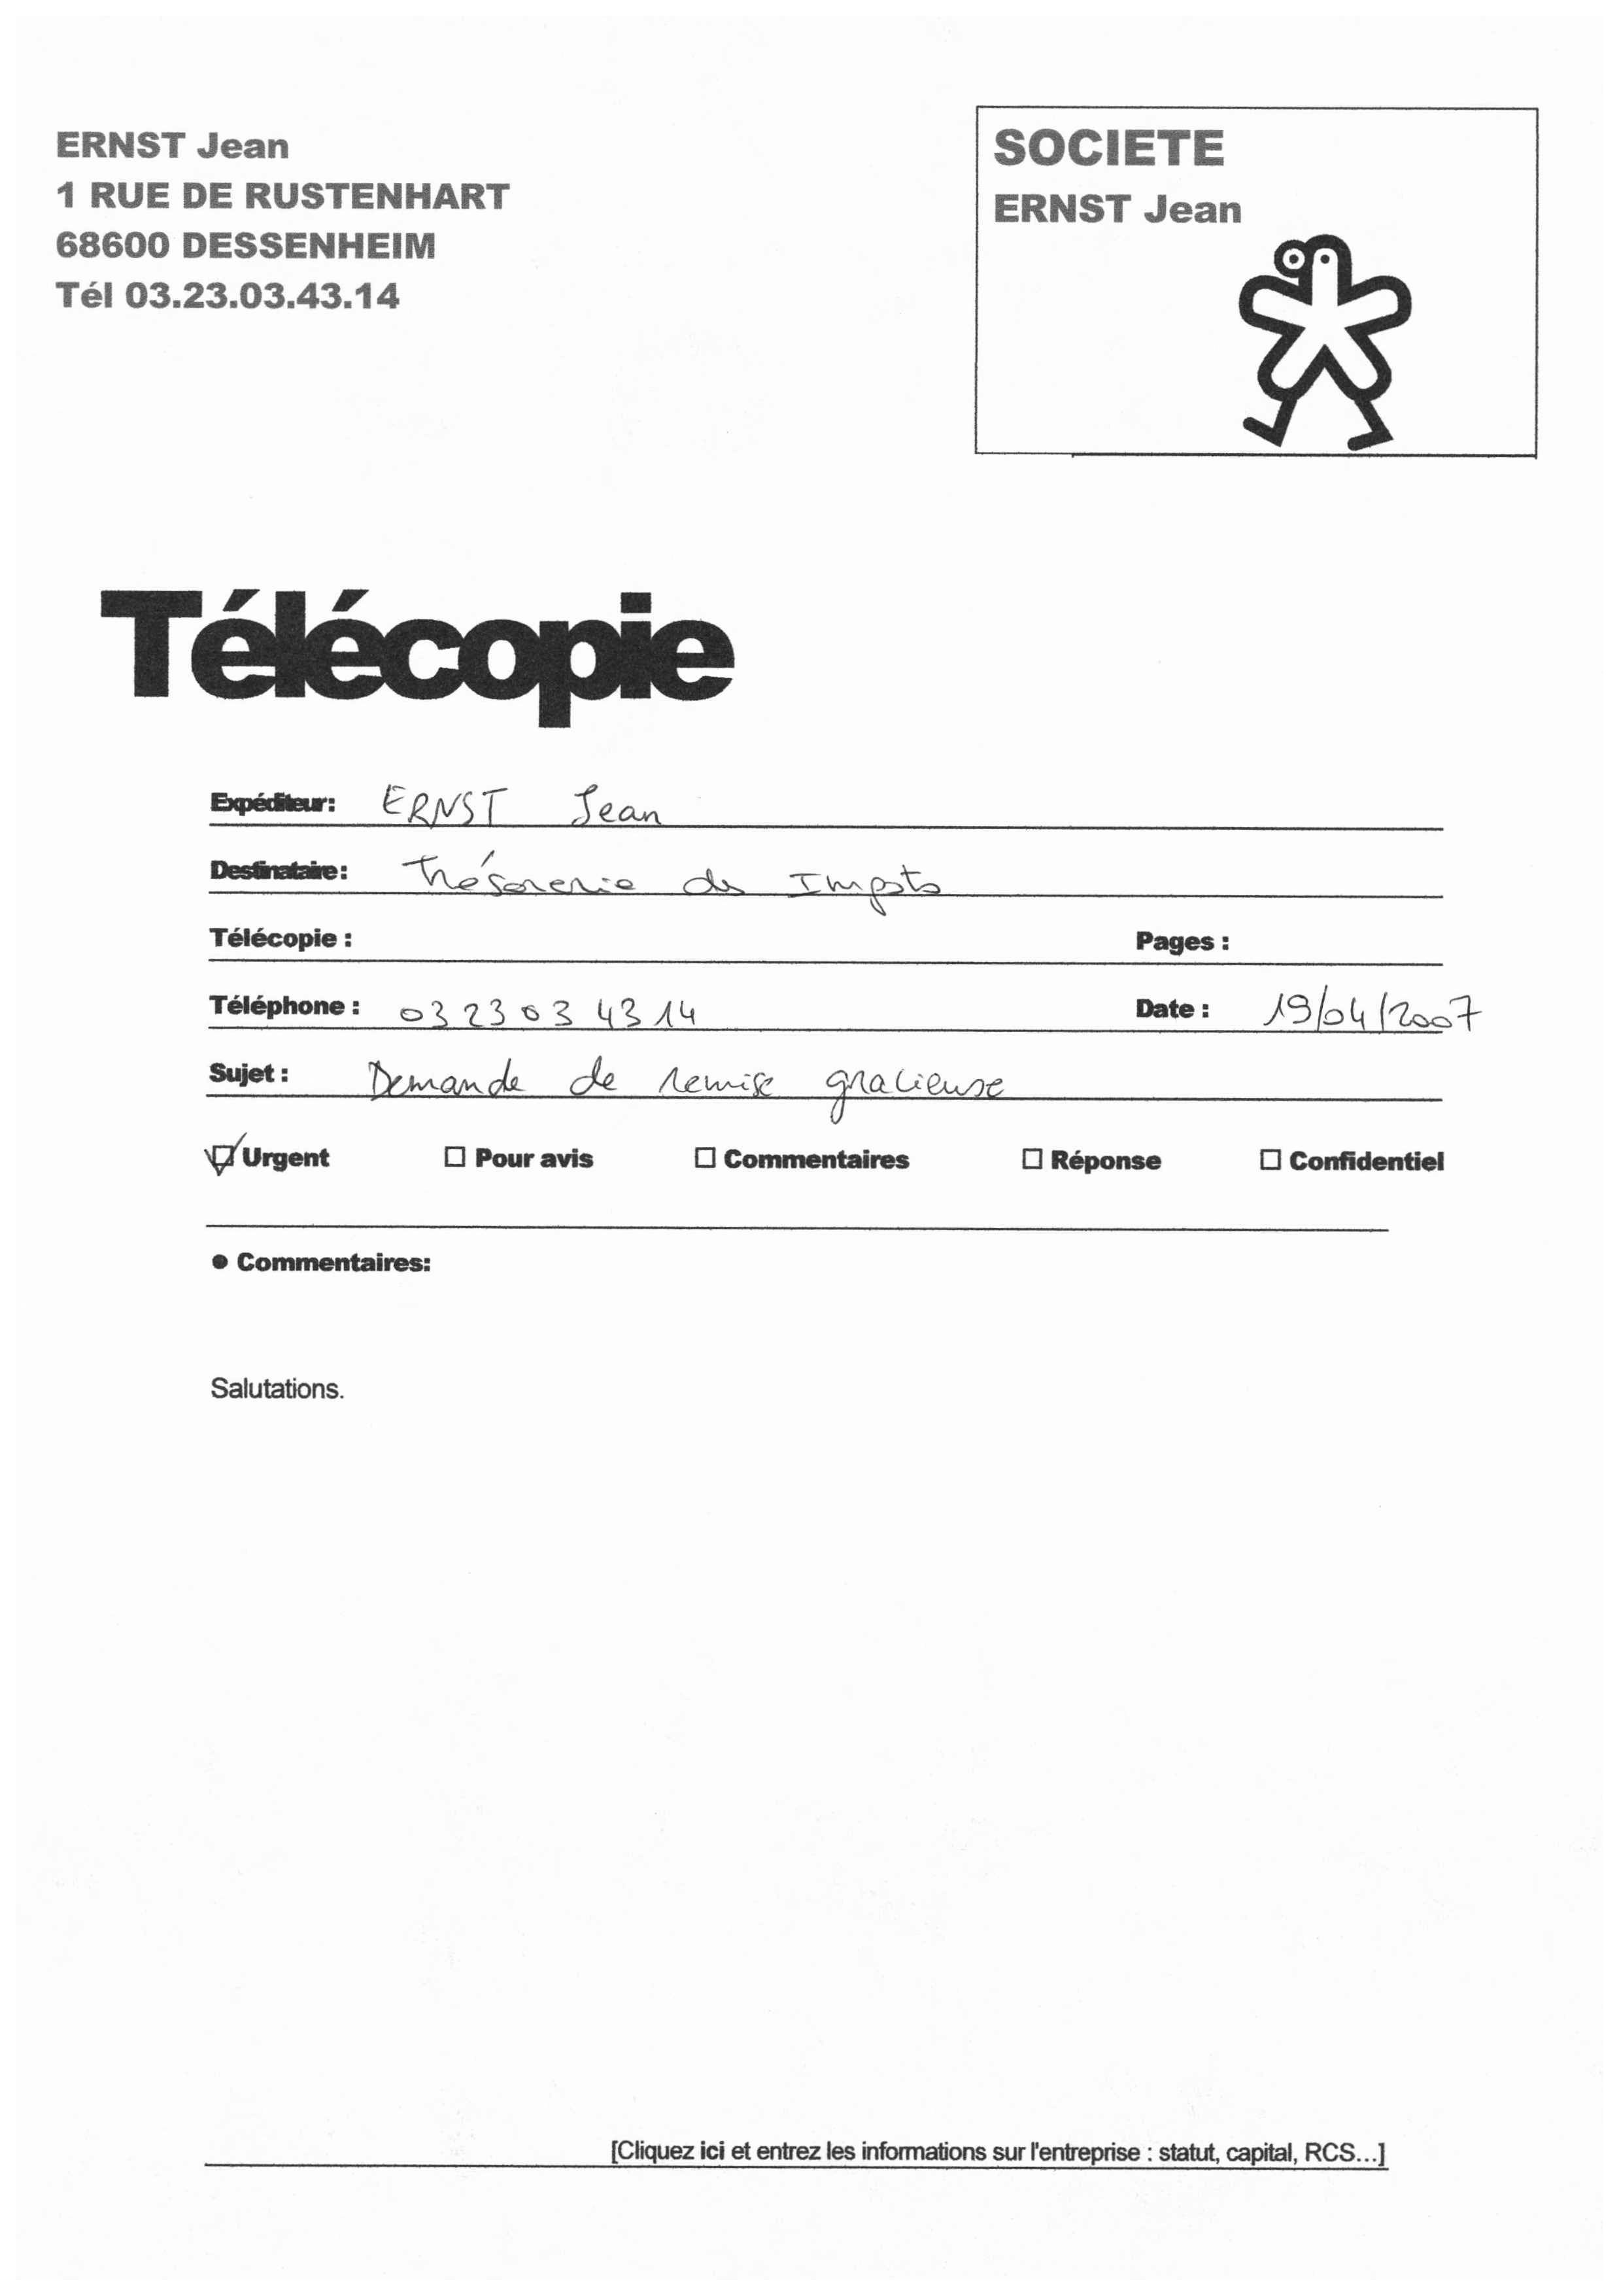 ERNST Jean
1 RUE DE RUSTENHART
68600 DESSENHEIM
Tél 03.23.03.43.14
SOCIETE
ERNST Jean
Télécopie
Expéditeur: ERNST Jean
Destinataire: Thésorerie des Impots
Télécopie : Pages :
Téléphone : 03 23 03 43 14 Date : 19/04/2007
Sujet : Demande de remise gracieuse
☑ Urgent ☐ Pour avis ☐ Commentaires ☐ Réponse ☐ Confidentiel
● Commentaires:
Salutations.
[Cliquez ici et entrez les informations sur l'entreprise : statut, capital, RCS...]